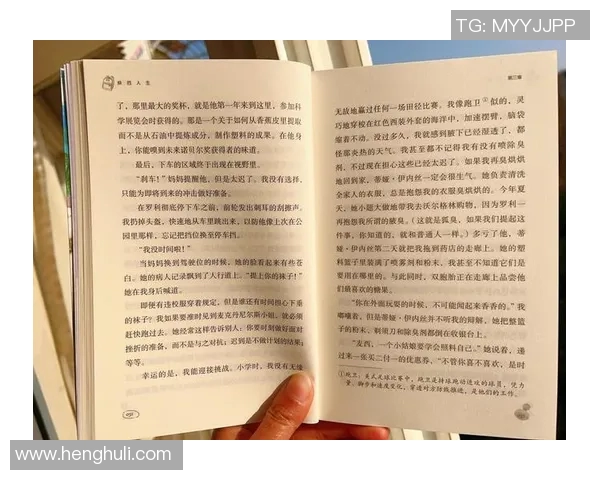 TG: MYYJJPP
麻烦人生
了，那里最大的奖杯，就是他第一年来到这里，参加科
学展览会时获得的。那是一个关于如何从香蕉皮里提取
而不是从石油中提炼成分，制作塑料的成果。在他身
上，你能嗅到未来诺贝尔奖获得者的味道。
最后，下车的区域终于出现在视野里。
“刹车！”妈妈提醒他，但是太迟了。我没有选择，
只能为即将到来的冲击做好准备。
在罗利彻底停下车之前，前轮发出刺耳的刮擦声，
我扔掉头盔，快速地从车里跳出来，以防他像上次在公
园里那样，忘记把挡位换至停车挡。
“我没时间啦！”
当妈妈换到驾驶位的时候，她的脸看起来有些苍
白。她的病人记录飘到了人行道上。“提上你的袜子！”
她在我身后喊道。
即便有连校服穿着规定，但是谁还有时间担心下垂
的袜子？我如果要准时见到麦克丹尼尔斯小姐，就必须
赶快跑过去。她经常这样告诉别人：你要时刻做好面对
挫折的准备，而不是与之对抗；迟到是不做计划的结果；
等等。
幸运的是，我能迎接挑战。小学时，我没有无缘
第三章
无故地赢过任何一场田径比赛。我像跑卫①似的，灵
巧地穿梭在红色西装外套的海洋中，加速摆臂，脑袋
缩着不动。没过多久，我就感到腋下已经湿透了，都
怪那炎热的天气。我甚至都不记得我有没有喷除臭
剂，不过现在担心这些已经太迟了。如果我再臭烘烘
地回到家，蒂娅·伊内丝一定会很生气。她负责清洗
全家人的衣服，总是抱怨我的衣服臭烘烘的。今年夏
天，她小题大做地带我去沃尔格林购物，因为罗利一
再抱怨我所谓的腋臭。（这就是孤臭，如果我们提起这
件事，你知道的，就和普通人一样。）多亏了他，蒂
娅·伊内丝第二天就把我拖到药店的走廊上。她的塑
料篮子里装满了喷雾剂和粉末，我甚至不知道它们是
要用在哪里的。与此同时，双胞胎正在走廊上品尝他
们最喜欢的糖果。
“你在外面玩耍的时候，不可能闻起来香香的。”我
嘟囔着，但是蒂娅·伊内丝并不听我的辩解，她把整篮
子的粉末、剃须刀和除臭剂都倒在收银台上。
“麦西，一个小姑娘要学会照料自己。”她说着，递
过来一张买二付一的优惠券。“不管你喜不喜欢，是时
①跑卫：美式足球比赛中，跑卫是持球跑动进攻的球员，凭力
量、脚步和速度变化，穿过对方防线推进，是他们的工作。
www.henghuli.com